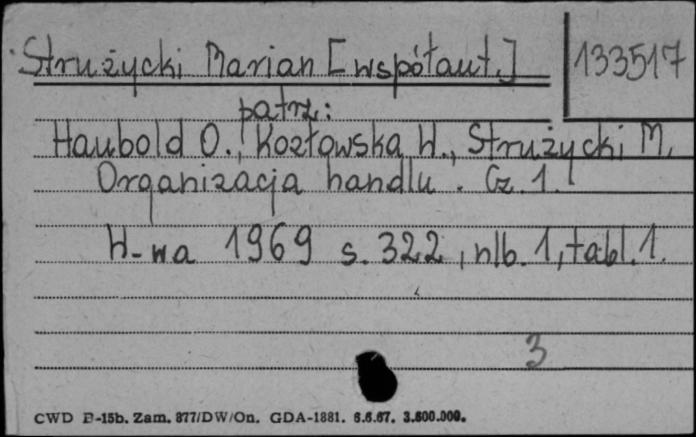 Strużycki Marian [współaut.]
133517
patrz:
Haubold O., Kozłowska W., Strużycki M.
Organizacja handlu. Cz. 1.
W-wa 1969 s. 322, nlb. 1, tabl. 1.
3
CWD B-15b. Zam. 877/DW/On. GDA-1881. 6.6.67. 3.600.000.